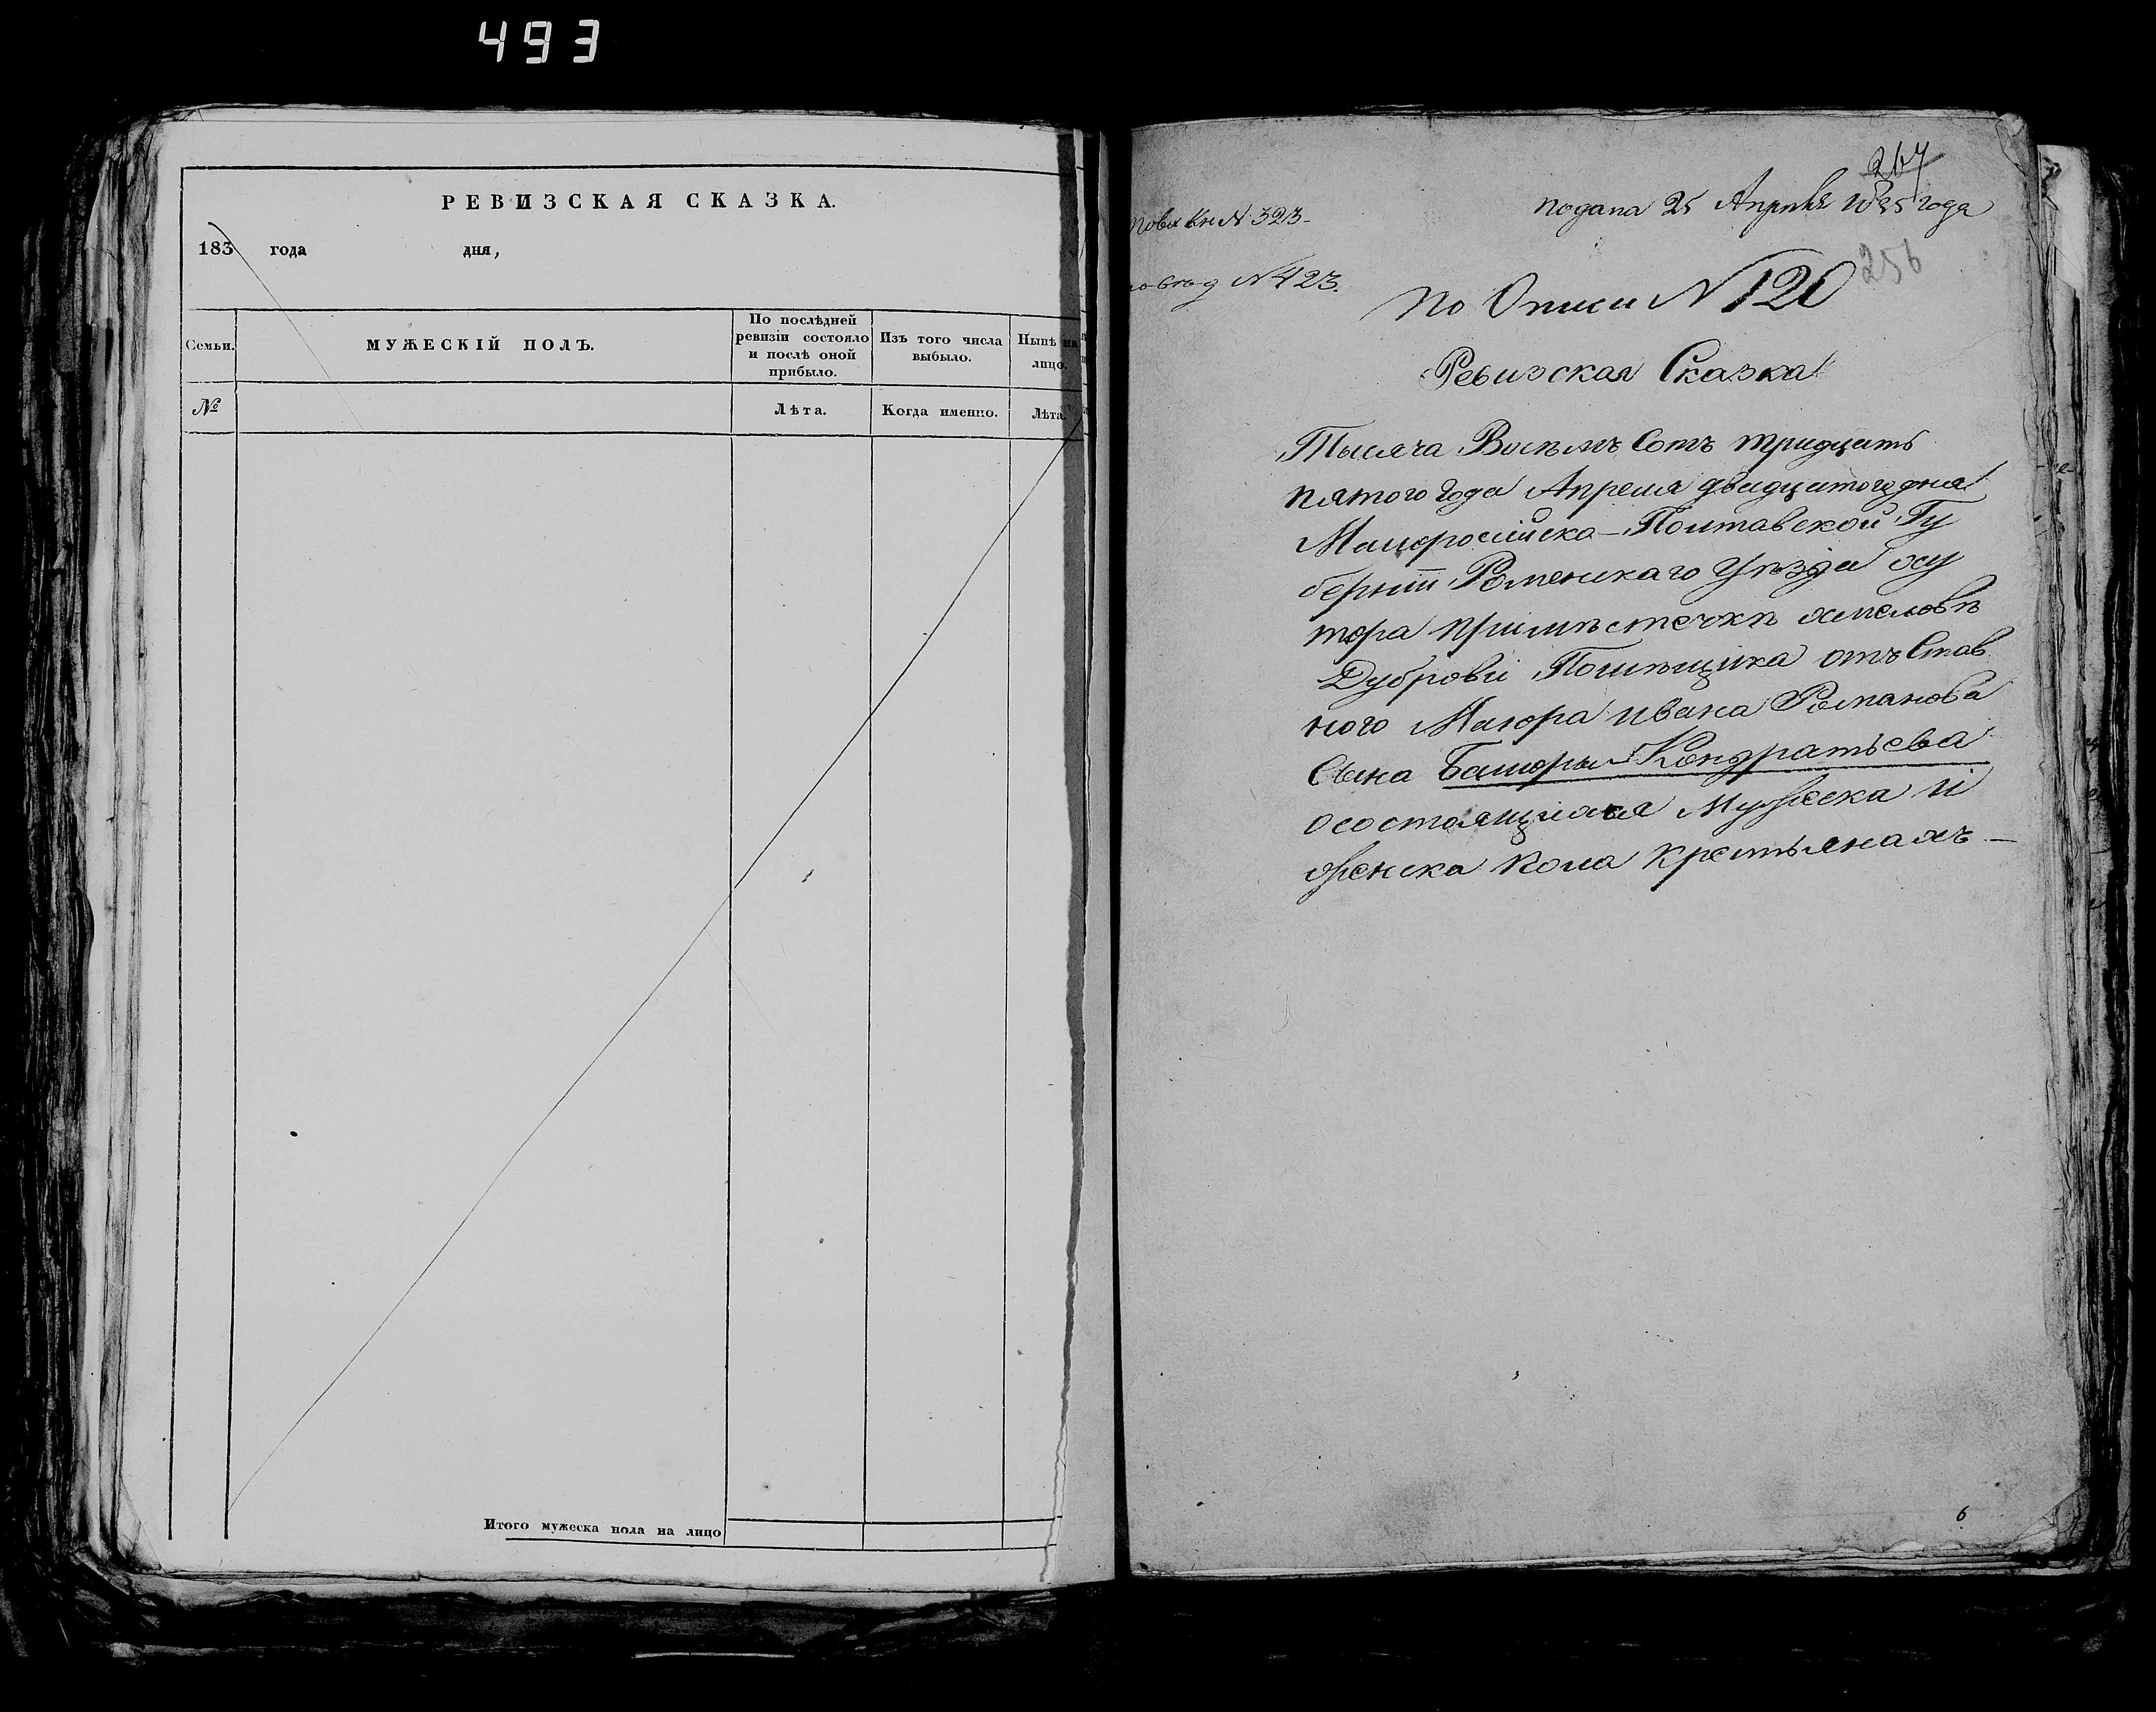 493
РЕВИЗСКАЯ СКАЗКА.
183 года дня,
Семьи.
МУЖЕСКІЙ ПОЛЪ.
По послѣдней
ревизіи состояло
и послѣ оной
прибыло.
Изъ того числа
выбыло.
Нынѣ на
лицо.
№
Лѣта.
Когда именно.
Лѣта.
Итого мужеска пола на лицо
267
подана 25 Апрѣля 1835 года
Кн N 323
N 423.
256
По Описи N 120
Ревизская Сказка
Тысяча Восемъ Сотъ тридцать
пятого года Апреля двадцатого дня
Малоросийско-Полтавской Гу
берніи Роменскаго Уѣзда ху
тора при мѣстечкѣ хмеловѣ
Дуброви Помѣщика отъ Став
ного Маiора ивана Романова
Сына Кондратьева
осостоящихся Мужеска И
женска пола крестьянахъ
6